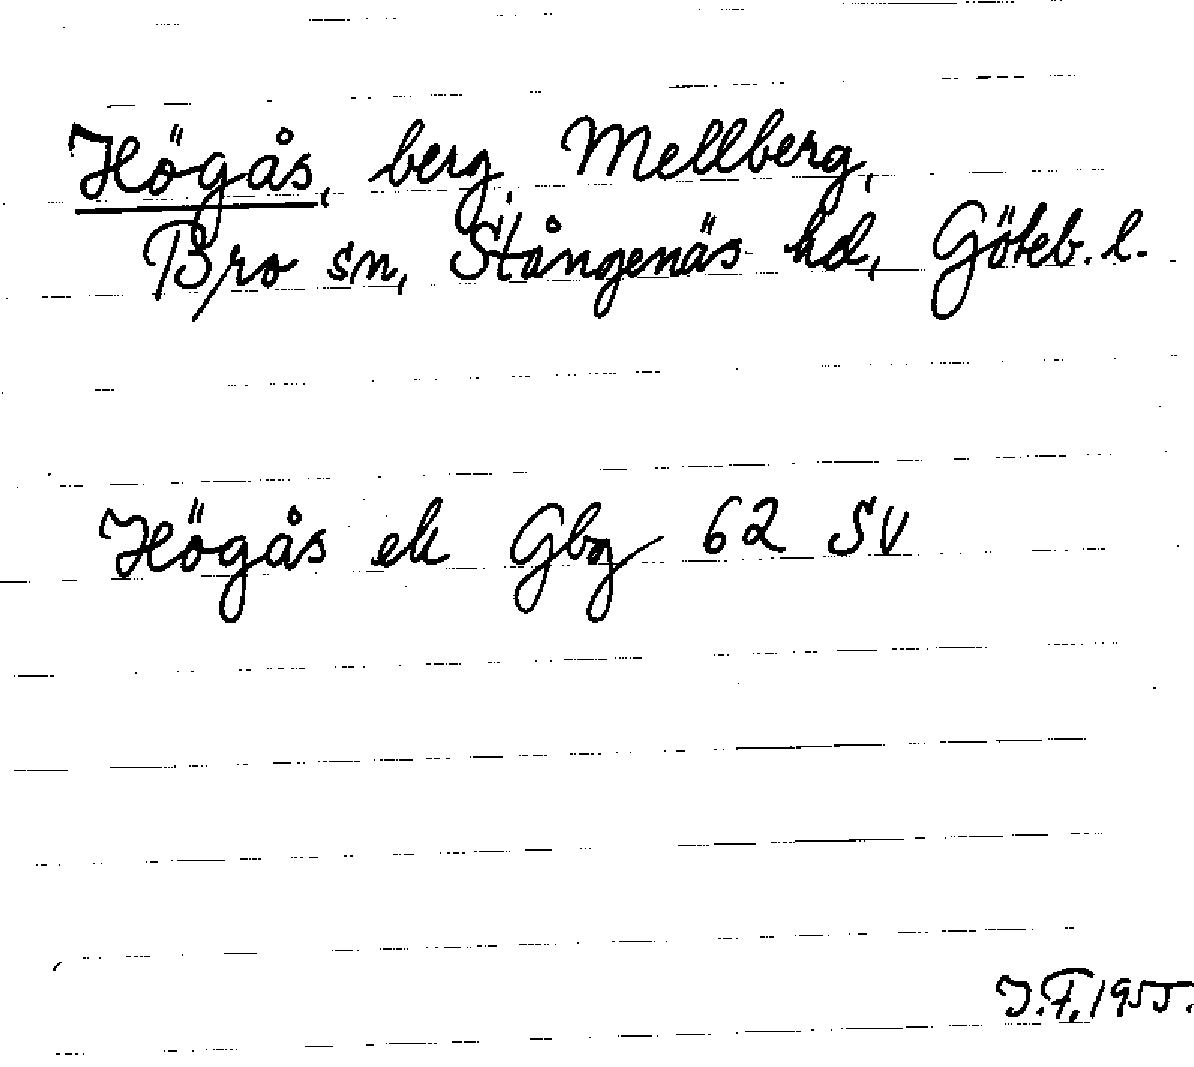 Högås, berg, Mellberg,
Bro sn, Stångenäs hd, Göteb. l.
Högås ek Gbg 62 SV
J.F. 1955.